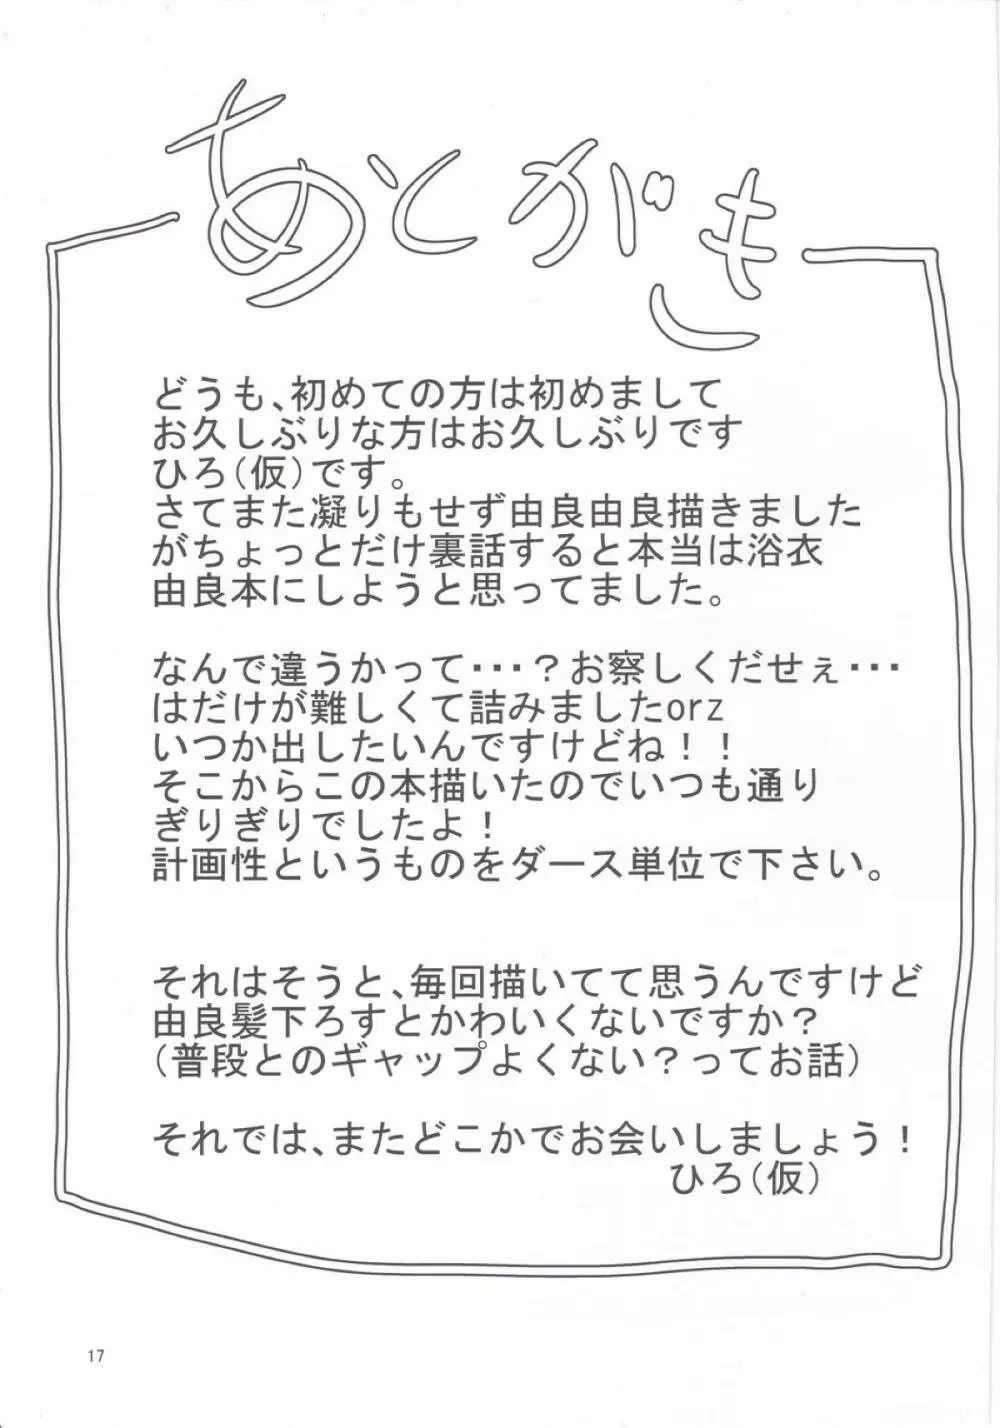 あとがき
どうも、初めての方は初めまして
お久しぶりな方はお久しぶりです
ひろ(仮)です。
さてまた凝りもせず由良由良描きました
がちょっとだけ裏話すると本当は浴衣
由良本にしようと思ってました。
なんで違うかって・・・？お察しくだせぇ・・・
はだけが難しくて詰みましたorz
いつか出したいんですけどね！！
そこからこの本描いたのでいつも通り
ぎりぎりでしたよ！
計画性というものをダース単位で下さい。
それはそうと、毎回描いてて思うんですけど
由良髪下ろすとかわいくないですか？
(普段とのギャップよくない？ってお話)
それでは、またどこかでお会いしましょう！
ひろ(仮)
17